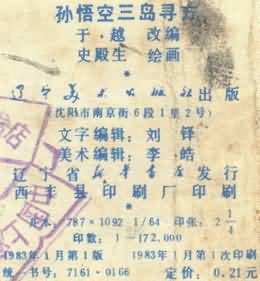 孙悟空三岛寻方
于·越 改编
史殿生 绘画
*
辽宁美术出版社出版
(沈阳市南京街6段1里2号)
文字编辑：刘铎
美术编辑：李皓
辽宁省新华书店发行
西丰县印刷厂印刷
*
开本：787×1092 1/64 印张：2 1/4
印数：1—172,000
1983年1月第1版 1983年1月第1次印刷
统一书号：7161·0166 定价：0.21元
书店